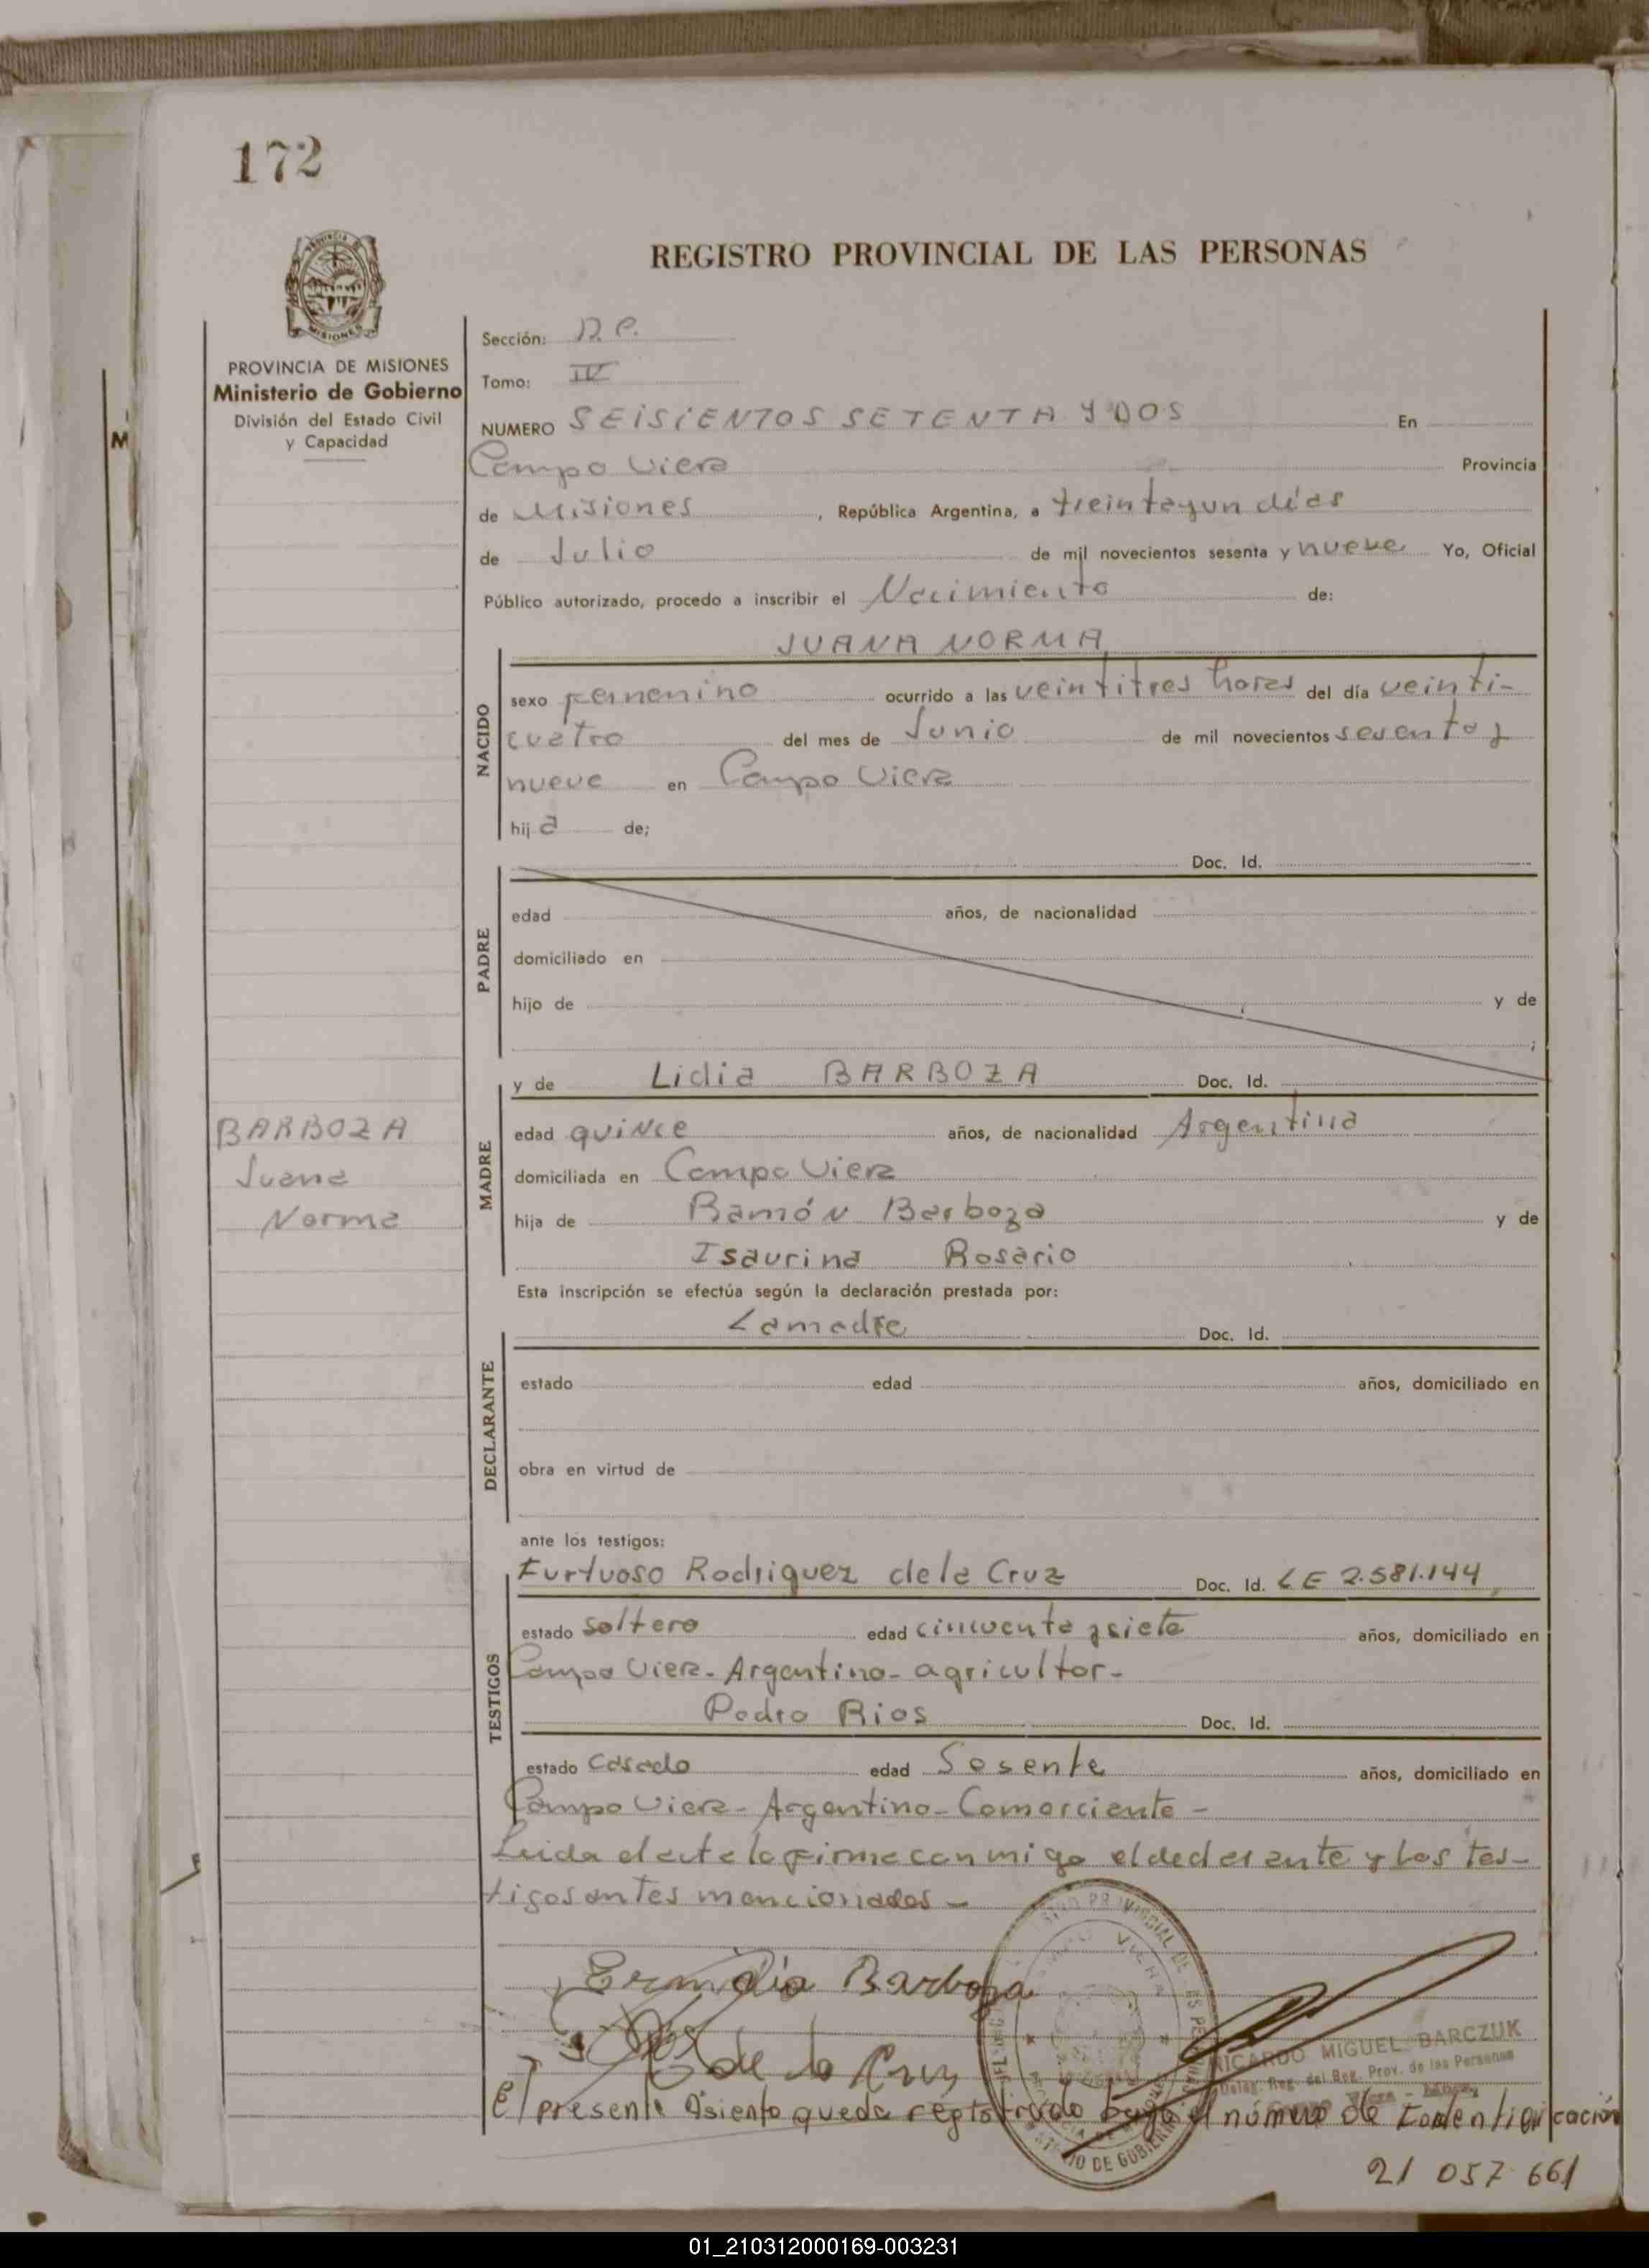 172
REGISTRO PROVINCIAL DE LAS PERSONAS
MISIONES
PROVINCIA DE MISIONES
Ministerio de Gobierno
División del Estado Civil
y Capacidad
M
Sección: D.P.
Tomo: IV
NUMERO SEISIENTOS SETENTA Y DOS En
Campo Viera Provincia
de Misiones, República Argentina, a treintayun días
de Julio de mil novecientos sesenta y nueve Yo, Oficial
Público autorizado, procedo a inscribir el Nacimiento de:
NACIDO
JUANA NORMA,
sexo femenino ocurrido a las veintitres horas del día veinti-
cuatro del mes de Junio de mil novecientos sesenta y
nueve en Campo Viera
hija de;
PADRE
Doc. Id.
edad años, de nacionalidad
domiciliado en
hijo de y de
;
BARBOZA
Juana
Norma
MADRE
y de Lidia BARBOZA Doc. Id.
edad quince años, de nacionalidad Argentina
domiciliada en Campo Viera
hija de Ramón Barboza y de
Isaurina Rosario
Esta inscripción se efectúa según la declaración prestada por:
DECLARANTE
La madre Doc. Id.
estado edad años, domiciliado en
obra en virtud de
ante los testigos:
TESTIGOS
Furtuoso Rodriguez de la Cruz Doc. Id. LE 2.581.144,
estado soltero edad cincuenta y siete años, domiciliado en
Campo Viera - Argentino - agricultor -
Pedro Rios Doc. Id.
estado casado edad Sesenta años, domiciliado en
Campo Viera - Argentino - Comerciante -
Leida el acta la firma conmigo el declarante y los tes-
tigos antes mencionados -
Barboza
de la Cruz
RICARDO MIGUEL BARCZUK
Deleg. Reg. del Reg. Prov. de las Personas
El presente Asiento queda registrado bajo el número de Identificación
21 057 661
01_210312000169-003231